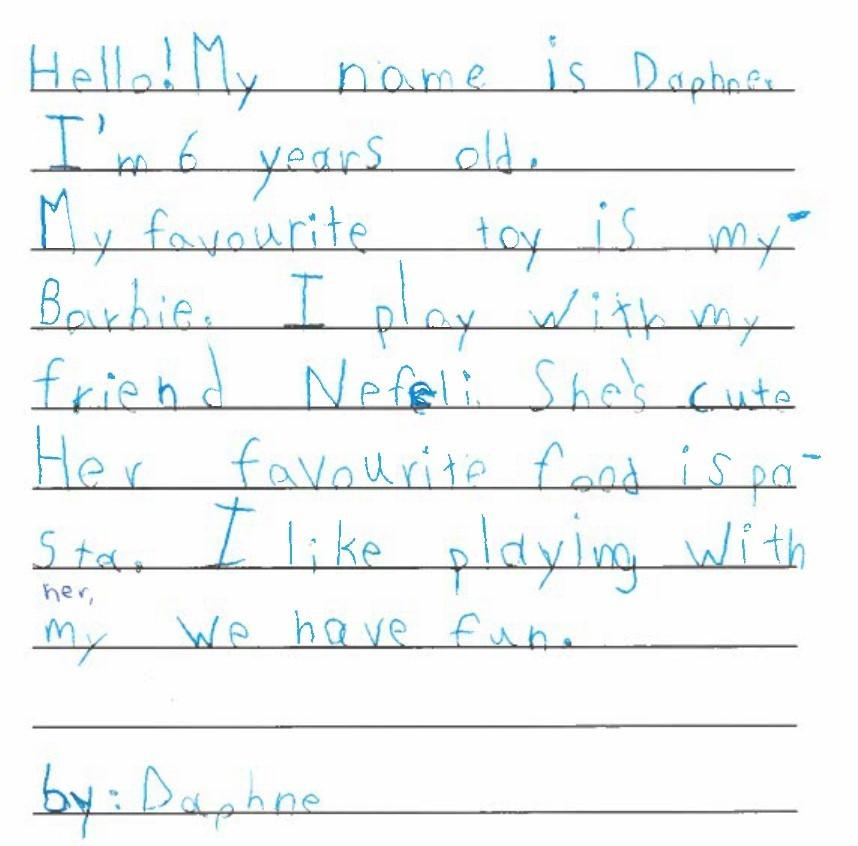 Hello! My name is Daphne.
I'm 6 years old.
My favourite toy is my-
Barbie. I play with my
friend Nefeli. She's cute
Her favourite food is pa-
sta. I like playing with
her,
my we have fun.
by: Daphne